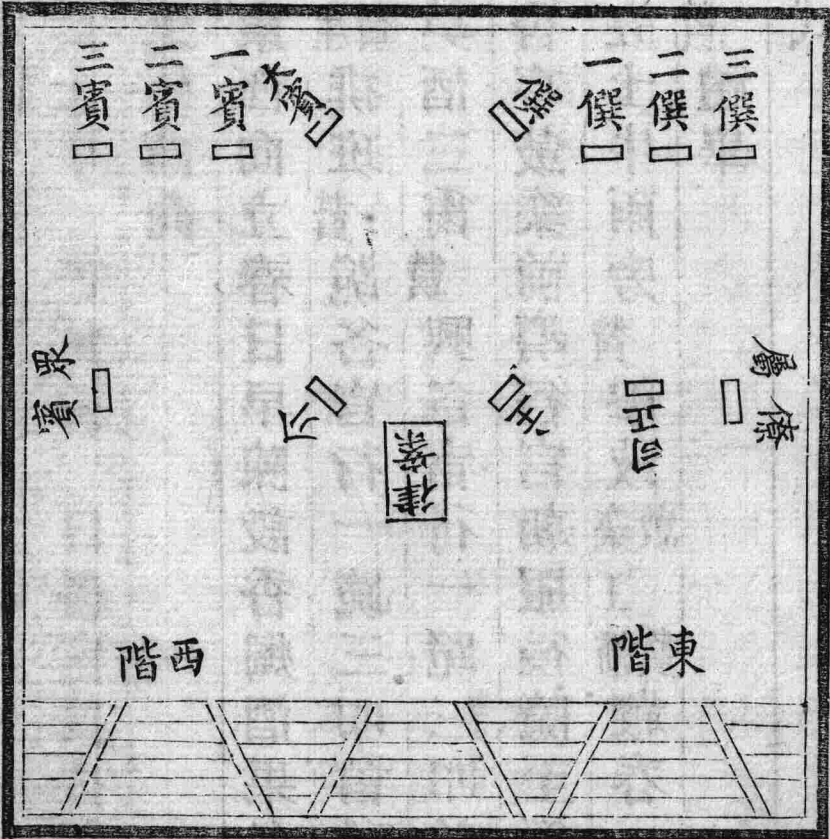 三僎
二僎
一僎
僎
大賓
一賓
二賓
三賓
僚屬
司正
主
律案
介
眾賓
東階
西階